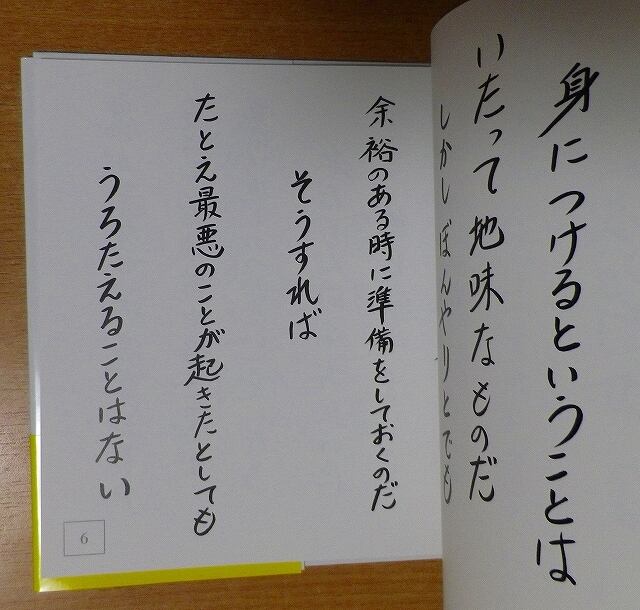 身につけるということは
いたって地味なものだ
しかしぼんやりとでも
余裕のある時に準備をしておくのだ
そうすれば
たとえ最悪のことが起きたとしても
うろたえることはない
6